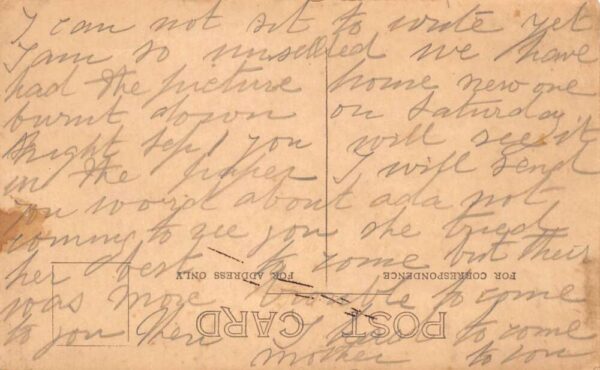 I can not set to write yet
I am so unsetled we have
had the picture home new one
burnt down on Saturday
night Sep 1 you will see it
in the paper I will send
you word about ada not
coming to see you she tryed
her best to come but their
was more trouble to come
to you then I have to come
mother to you
FOR ADDRESS ONLY
FOR CORRESPONDENCE
POST CARD